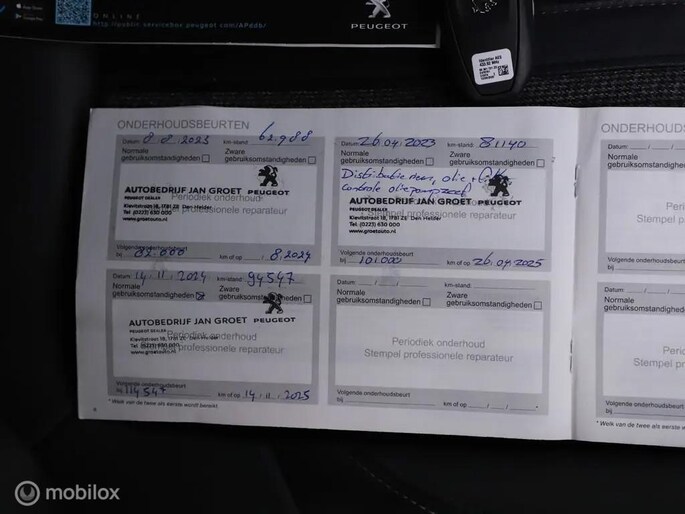 ONLINE
http://public.servicebox.peugeot.com/APddb/
PEUGEOT
ONDERHOUDSBEURTEN
Datum: 8 8 2023 km-stand: 62.988
Normale gebruiksomstandigheden
Zware gebruiksomstandigheden
AUTOBEDRIJF JAN GROET PEUGEOT
PEUGEOT DEALER
Periodiek onderhoud
Kievitstraat 18, 1781 ZS Den Helder
Tel. (0223) 630 000
Stempel professionele reparateur
www.groetauto.nl
Volgende onderhoudsbeurt
bij 82.000 km of op 8/2024
Datum: 26.04/2023 km-stand: 81140
Normale gebruiksomstandigheden
Zware gebruiksomstandigheden
Distributie riem, olie +
controle oliepompzeef
AUTOBEDRIJF JAN GROET PEUGEOT
PEUGEOT DEALER
Periodiek onderhoud
Kievitstraat 18, 1781 ZS Den Helder
Tel. (0223) 630 000
Stempel professionele reparateur
www.groetauto.nl
Volgende onderhoudsbeurt
bij 101.000 km of op 26.04/2025
Datum: 14/11/2024 km-stand: 94547
Normale gebruiksomstandigheden
Zware gebruiksomstandigheden
AUTOBEDRIJF JAN GROET PEUGEOT
PEUGEOT DEALER
Periodiek onderhoud
Kievitstraat 18, 1781 ZS Den Helder
Tel. (0223) 630 000
Stempel professionele reparateur
www.groetauto.nl
Volgende onderhoudsbeurt
bij 114.547 km of op 14/11/2025
* Welk van de twee als eerste wordt bereikt.
Datum: km-stand:
Normale gebruiksomstandigheden
Zware gebruiksomstandigheden
Periodiek onderhoud
Stempel professionele reparateur
Volgende onderhoudsbeurt
bij km of op
ONDERHOUDS
Datum:
Normale
gebruiksomstandigheden
Stempel
Volgende onderhoudsbeurt
bij
Datum:
Normale
gebruiksomstandigheden
Stempel
Volgende onderhoudsbeurt
bij
* Welk van de twee als eerste wordt
mobilox